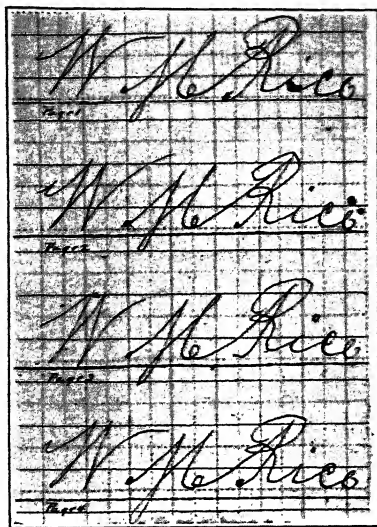 W M Rice
Page 1
W M Rice
Page 2
W M Rice
Page 3
W M Rice
Page 4